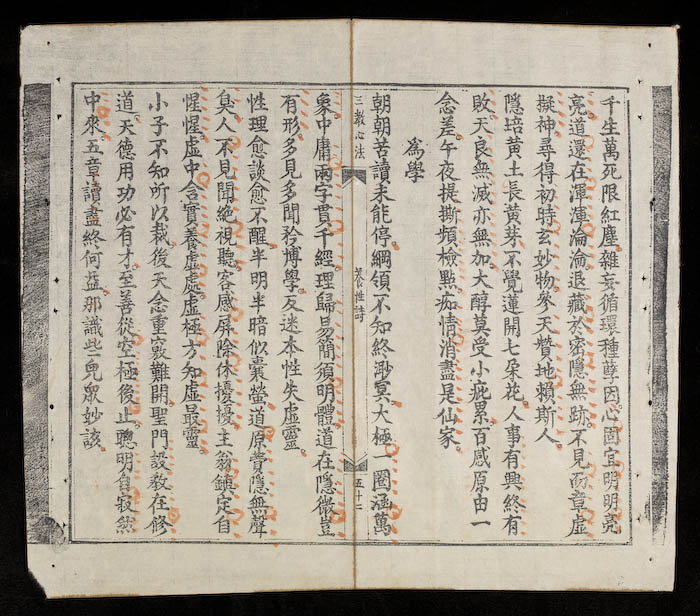 千生萬死限紅塵。雜妄循環種孽因。心圖宜明明亮
亮。道還在渾渾淪淪。退藏於密隱無跡。不見而章虛
擬神。尋得初時玄妙物。參天贊地賴斯人。
隱培黃土長黃芽。不覺蓮開七朶花。人事有興終有
敗。天良無減亦無加。大醇莫受小疵累。百感原由一
念差。午夜提撕頻檢點。痴情消盡是仙家。
為學
朝朝苦讀未能停。綱領不知終渺冥。太極一圈涵萬
三教心法
養性詩
五十二
象。中庸兩字貫千經。理歸易簡須明體。道在隱微豈
有形。多見多聞矜博學。反迷本性失虛靈。
性理愈談愈不醒。半明半暗似囊螢。道原費隱無聲
臭。人不見聞絕視聽。客感屏除休擾擾。主翁鎮定自
惺惺。虛中含實養虛處。虛極方知虛最靈。
小子不知所以裁。後天念重竅難開。聖門設教在修
道。天德用功必有才。至善從空極後止。聰明自寂然
中來。五章讀盡終何益。那識些兒眾妙該。